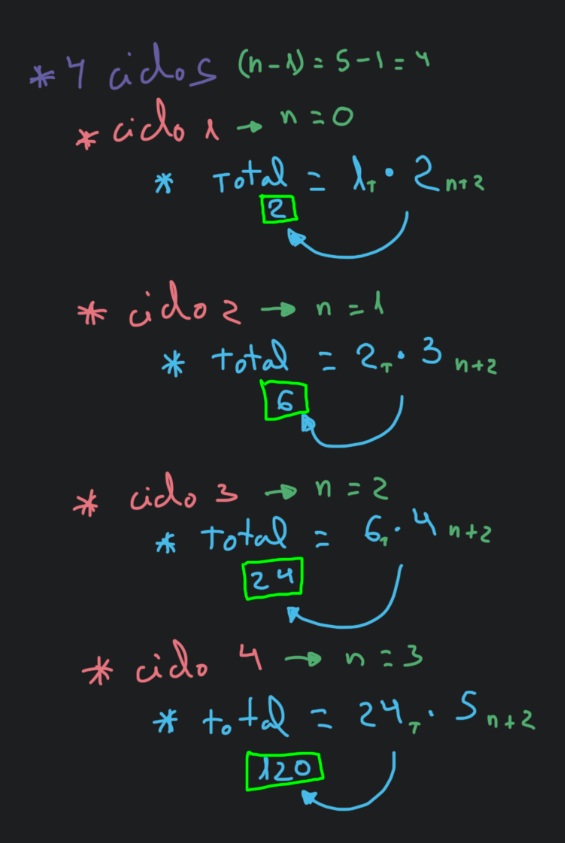 * 4 ciclos (n-1) = 5-1 = 4
* ciclo 1 → n = 0
* Total = 1T · 2 n+2
2
* ciclo 2 → n = 1
* total = 2T · 3 n+2
6
* ciclo 3 → n = 2
* total = 6T · 4 n+2
24
* ciclo 4 → n = 3
* total = 24T · 5 n+2
120